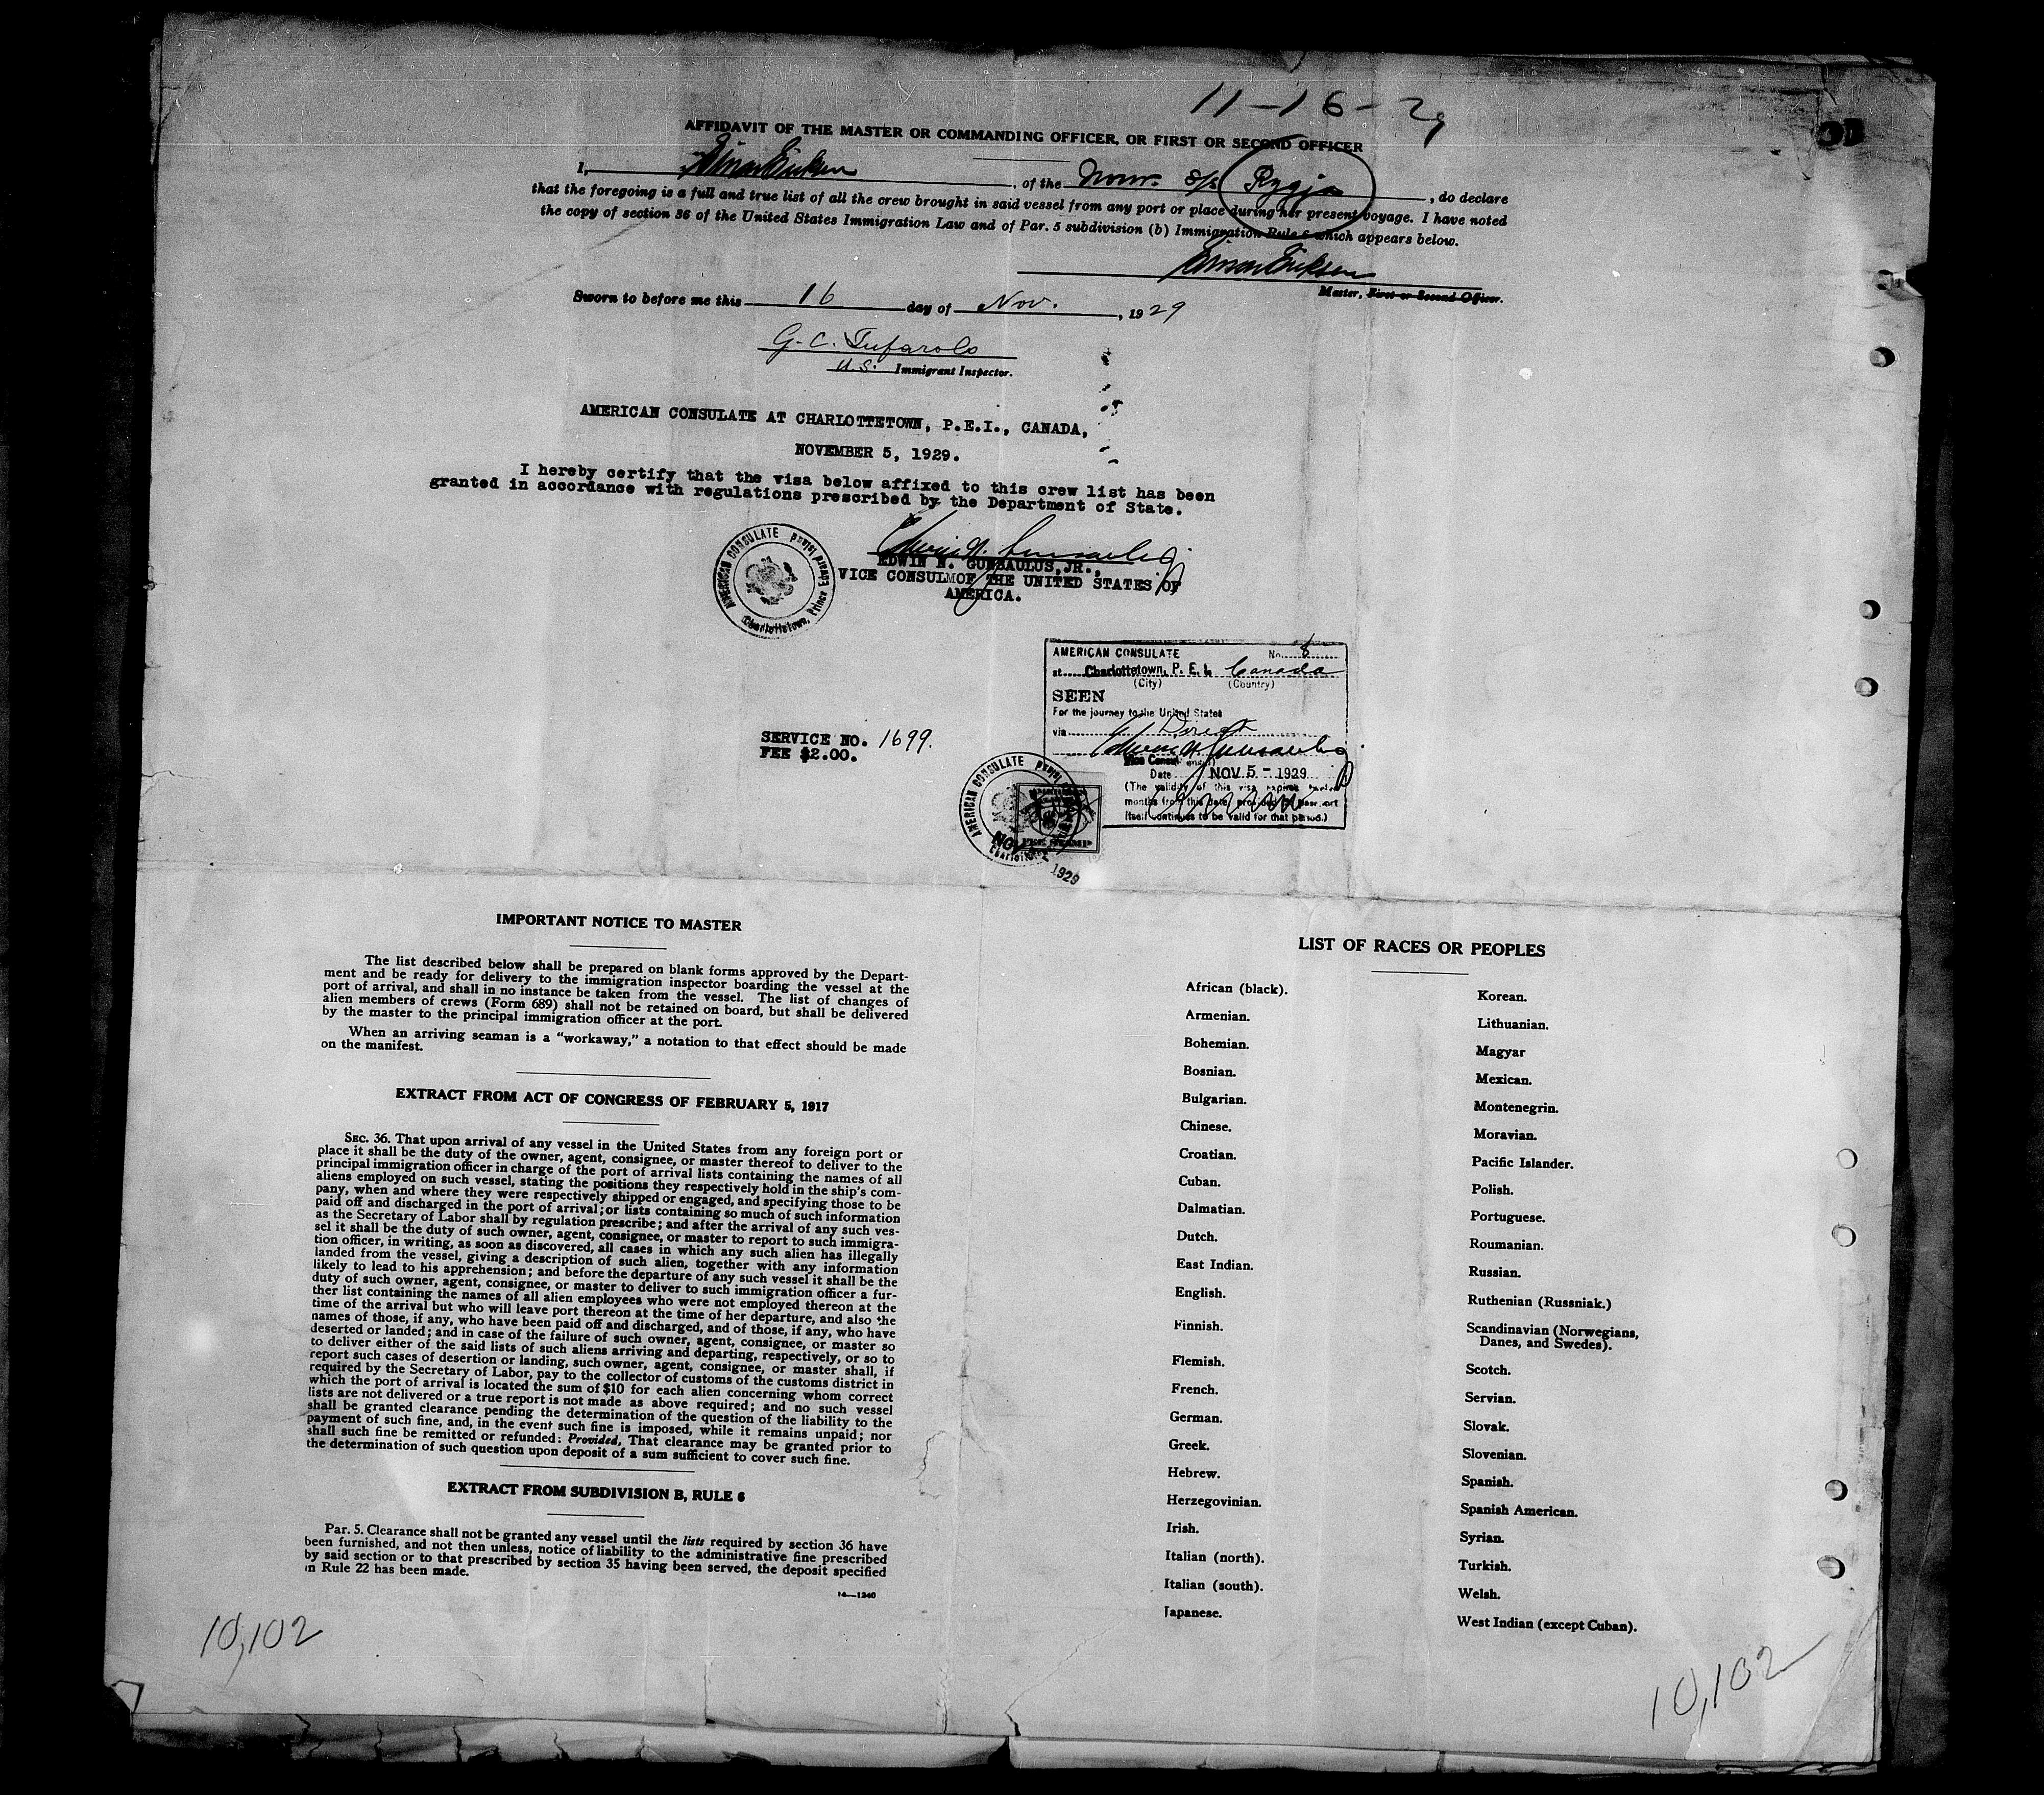 11-16-29
AFFIDAVIT OF THE MASTER OR COMMANDING OFFICER, OR FIRST OR SECOND OFFICER
I, Einar Eriksen, of the Norw. S/S Rygja, do declare
that the foregoing is a full and true list of all the crew brought in said vessel from any port or place during her present voyage. I have noted
the copy of section 36 of the United States Immigration Law and of Par. 5 subdivision (b) Immigration Rule 6 which appears below.
Einar Eriksen
Master, First or Second Officer.
Sworn to before me this 16 day of Nov., 1929
G. C. Tufarolo
U.S. Immigrant Inspector.
AMERICAN CONSULATE AT CHARLOTTETOWN, P.E.I., CANADA,
NOVEMBER 5, 1929.
I hereby certify that the visa below affixed to this crew list has been
granted in accordance with regulations prescribed by the Department of State.
AMERICAN CONSULATE
Charlottetown, Prince Edward Island
EDWIN N. GUNSAULUS, JR.,
VICE CONSULMOF THE UNITED STATES OF
AMERICA.
AMERICAN CONSULATE No. 8
at Charlottetown, P. E. I. Canada
(City) (Country)
SEEN
For the journey to the United States
via Direct
Vice Consul
Date NOV 5 - 1929
(The validity of this visa expires twelve
months from this date, provided the passport
itself continues to be valid for that period.)
SERVICE NO. 1699.
FEE $2.00.
AMERICAN CONSULATE
NOV 1929
FEE STAMP
IMPORTANT NOTICE TO MASTER
The list described below shall be prepared on blank forms approved by the Depart-
ment and be ready for delivery to the immigration inspector boarding the vessel at the
port of arrival, and shall in no instance be taken from the vessel. The list of changes of
alien members of crews (Form 689) shall not be retained on board, but shall be delivered
by the master to the principal immigration officer at the port.
When an arriving seaman is a “workaway,” a notation to that effect should be made
on the manifest.
EXTRACT FROM ACT OF CONGRESS OF FEBRUARY 5, 1917
SEC. 36. That upon arrival of any vessel in the United States from any foreign port or
place it shall be the duty of the owner, agent, consignee, or master thereof to deliver to the
principal immigration officer in charge of the port of arrival lists containing the names of all
aliens employed on such vessel, stating the positions they respectively hold in the ship's com-
pany, when and where they were respectively shipped or engaged, and specifying those to be
paid off and discharged in the port of arrival; or lists containing so much of such information
as the Secretary of Labor shall by regulation prescribe; and after the arrival of any such ves-
sel it shall be the duty of such owner, agent, consignee, or master to report to such immigra-
tion officer, in writing, as soon as discovered, all cases in which any such alien has illegally
landed from the vessel, giving a description of such alien, together with any information
likely to lead to his apprehension; and before the departure of any such vessel it shall be the
duty of such owner, agent, consignee, or master to deliver to such immigration officer a fur-
ther list containing the names of all alien employees who were not employed thereon at the
time of the arrival but who will leave port thereon at the time of her departure, and also the
names of those, if any, who have been paid off and discharged, and of those, if any, who have
deserted or landed; and in case of the failure of such owner, agent, consignee, or master so
to deliver either of the said lists of such aliens arriving and departing, respectively, or so to
report such cases of desertion or landing, such owner, agent, consignee, or master shall, if
required by the Secretary of Labor, pay to the collector of customs of the customs district in
which the port of arrival is located the sum of $10 for each alien concerning whom correct
lists are not delivered or a true report is not made as above required; and no such vessel
shall be granted clearance pending the determination of the question of the liability to the
payment of such fine, and, in the event such fine is imposed, while it remains unpaid; nor
shall such fine be remitted or refunded: Provided, That clearance may be granted prior to
the determination of such question upon deposit of a sum sufficient to cover such fine.
EXTRACT FROM SUBDIVISION B, RULE 6
Par. 5. Clearance shall not be granted any vessel until the lists required by section 36 have
been furnished, and not then unless, notice of liability to the administrative fine prescribed
by said section or to that prescribed by section 35 having been served, the deposit specified
in Rule 22 has been made.
14—1240
10,102
LIST OF RACES OR PEOPLES
African (black).
Armenian.
Bohemian.
Bosnian.
Bulgarian.
Chinese.
Croatian.
Cuban.
Dalmatian.
Dutch.
East Indian.
English.
Finnish.
Flemish.
French.
German.
Greek.
Hebrew.
Herzegovinian.
Irish.
Italian (north).
Italian (south).
Japanese.
Korean.
Lithuanian.
Magyar
Mexican.
Montenegrin.
Moravian.
Pacific Islander.
Polish.
Portuguese.
Roumanian.
Russian.
Ruthenian (Russniak.)
Scandinavian (Norwegians,
Danes, and Swedes).
Scotch.
Servian.
Slovak.
Slovenian.
Spanish.
Spanish American.
Syrian.
Turkish.
Welsh.
West Indian (except Cuban).
10,102